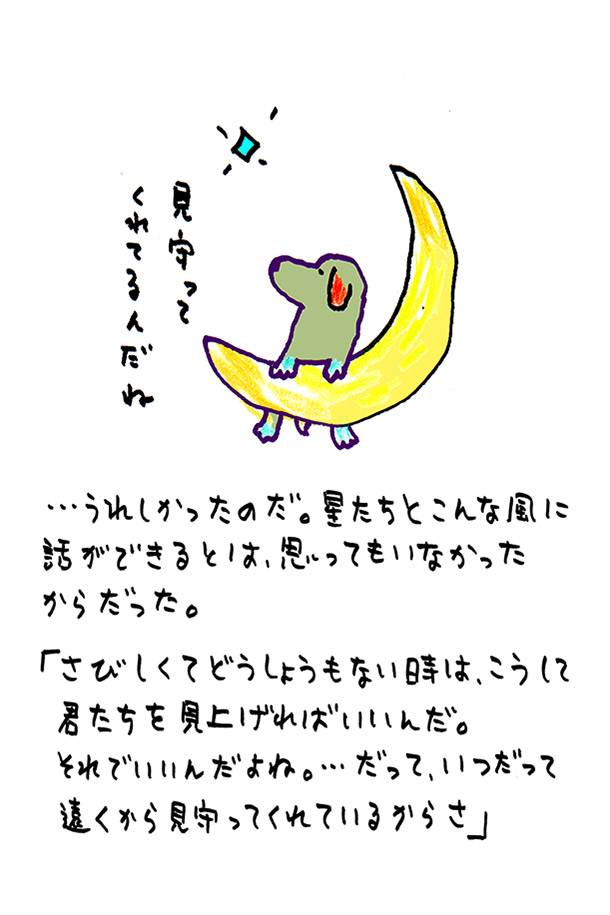 見守って
くれてるんだね
…うれしかったのだ。星たちとこんな風に
話ができるとは、思ってもいなかった
からだった。
「さびしくてどうしょうもない時は、こうして
君たちを見上げればいいんだ。
それでいいんだよね。…だって、いつだって
遠くから見守ってくれているからさ」